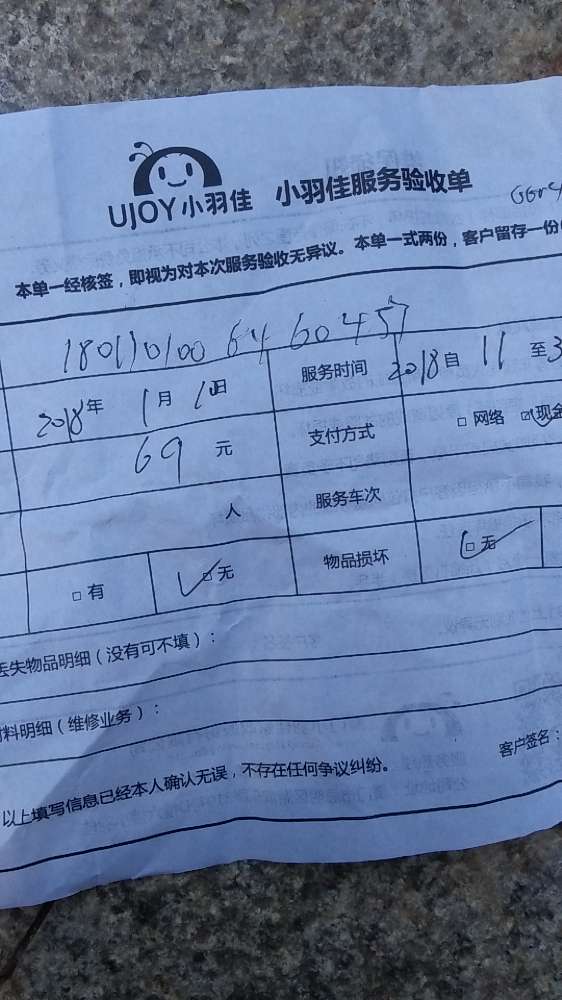 UJOY小羽佳 小羽佳服务验收单
本单一经核签，即视为对本次服务验收无异议。本单一式两份，客户留存一份
服务时间 2018自 11 至3
2018年 1月 日
69 元 支付方式 □ 网络 ☑现金
人 服务车次
□ 有 □无 物品损坏 □无
丢失物品明细（没有可不填）：
材料明细（维修业务）：
客户签名：
以上填写信息已经本人确认无误，不存在任何争议纠纷。